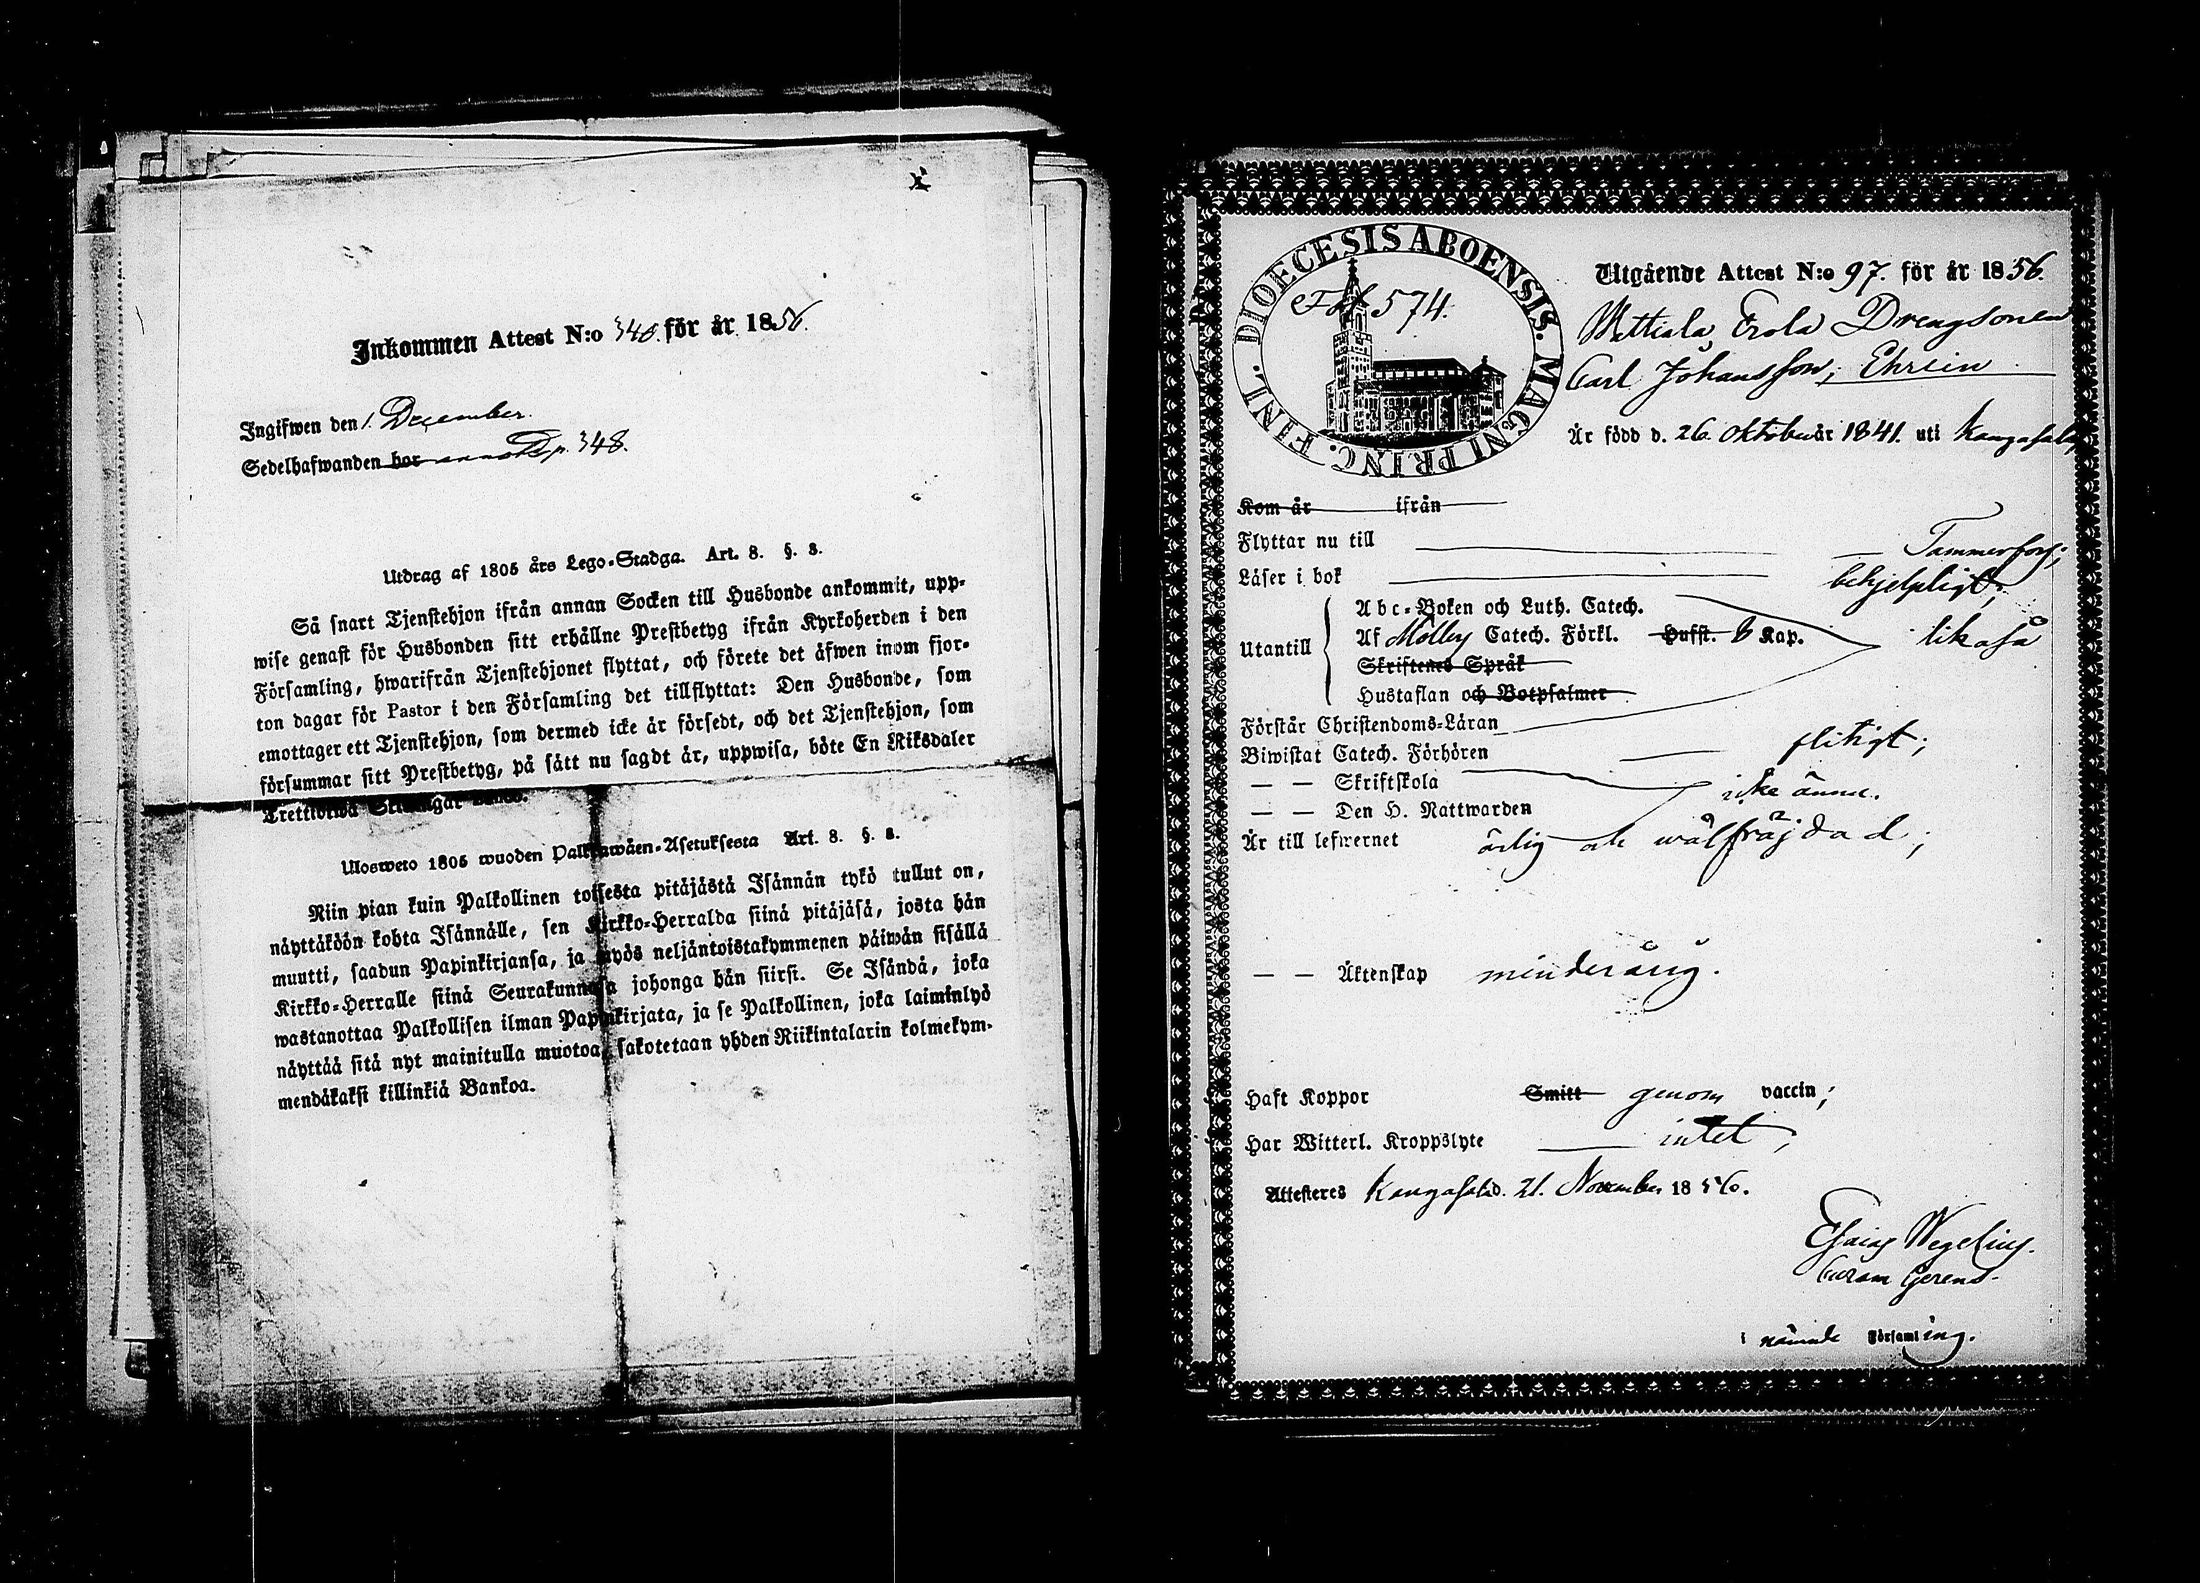 Inkommen Attest N:o 340. för år 1856.
Ingifwen den 1. December.
Sedelhafwanden bor annot. p. 348.
Utdrag af 1805 års Lego-Stadga. Art. 8. §. 3.
Så snart Tjenstehjon ifrån annan Socken till Husbonde ankommit, upp-
wise genast för Husbonden sitt erhållne Prestbetyg ifrån Kyrkoherden i den
Församling, hwarifrån Tjenstehjonet flyttat, och förete det äfwen inom fjor-
ton dagar för Pastor i den Församling det tillflyttat: Den Husbonde, som
emottager ett Tjenstehjon, som dermed icke är försedt, och det Tjenstehjon, som
försummar sitt Prestbetyg, på sätt nu sagdt är, uppwisa, böte En Riksdaler
Ulosweto 1805 wuoden Palkawäen-Asetuksesta Art. 8. §. 3.
Niin pian kuin Palkollinen toisesta pitäjästä Isännän tykö tullut on,
näyttäköön kohta Isännälle, sen Kirkko-Herralda siinä pitäjäsä, josta hän
muutti, saadun Papinkirjansa, ja myös neljäntoistakymmenen päiwän sisällä
Kirkko-Herralle siinä Seurakunnasa johonga hän siirsi. Se Isändä, joka
wastanottaa Palkollisen ilman Papinkirjata, ja se Palkollinen, joka laiminlyö
näyttää sitä nyt mainitulla muotoa, sakotetaan yhden Riikintalarin kolmekym-
mendäkaksi killinkiä Bankoa.
DIOECESIS ABOENSIS. MAGNI PRINC. FINL.
Fol 574.
Utgående Attest N:o 97. för år 1856.
Mattiala, Erola Drengsonen
Carl Johansson, Ehrein
Är född d. 26. Oktober år 1841. uti Kangasala,
Kom år ifrån
Flyttar nu till Tammerfors;
Läser i bok behjelpligt;
Utantill
Abc-Boken och Luth. Catech.
Af Möllers Catech. Förkl. Hufst. 6 Kap. likaså
Skriftenes Språk
Hustaflan och Botpsalmer
Förstår Christendoms-Läran
Biwistat Catech. Förhören flitigt;
— — Skriftskola icke ännu.
— — Den H. Nattwarden
Är till lefwernet ärlig och wälfräjdad;
— — Äktenskap minderårig.
Haft Koppor Smitt genom vaccin;
Har Witterl. Kroppslyte intet;
Attesteres Kangasala d. 21. November 1856.
Esaias Wegelius.
Curam Gerens.
i nämnde Församling.